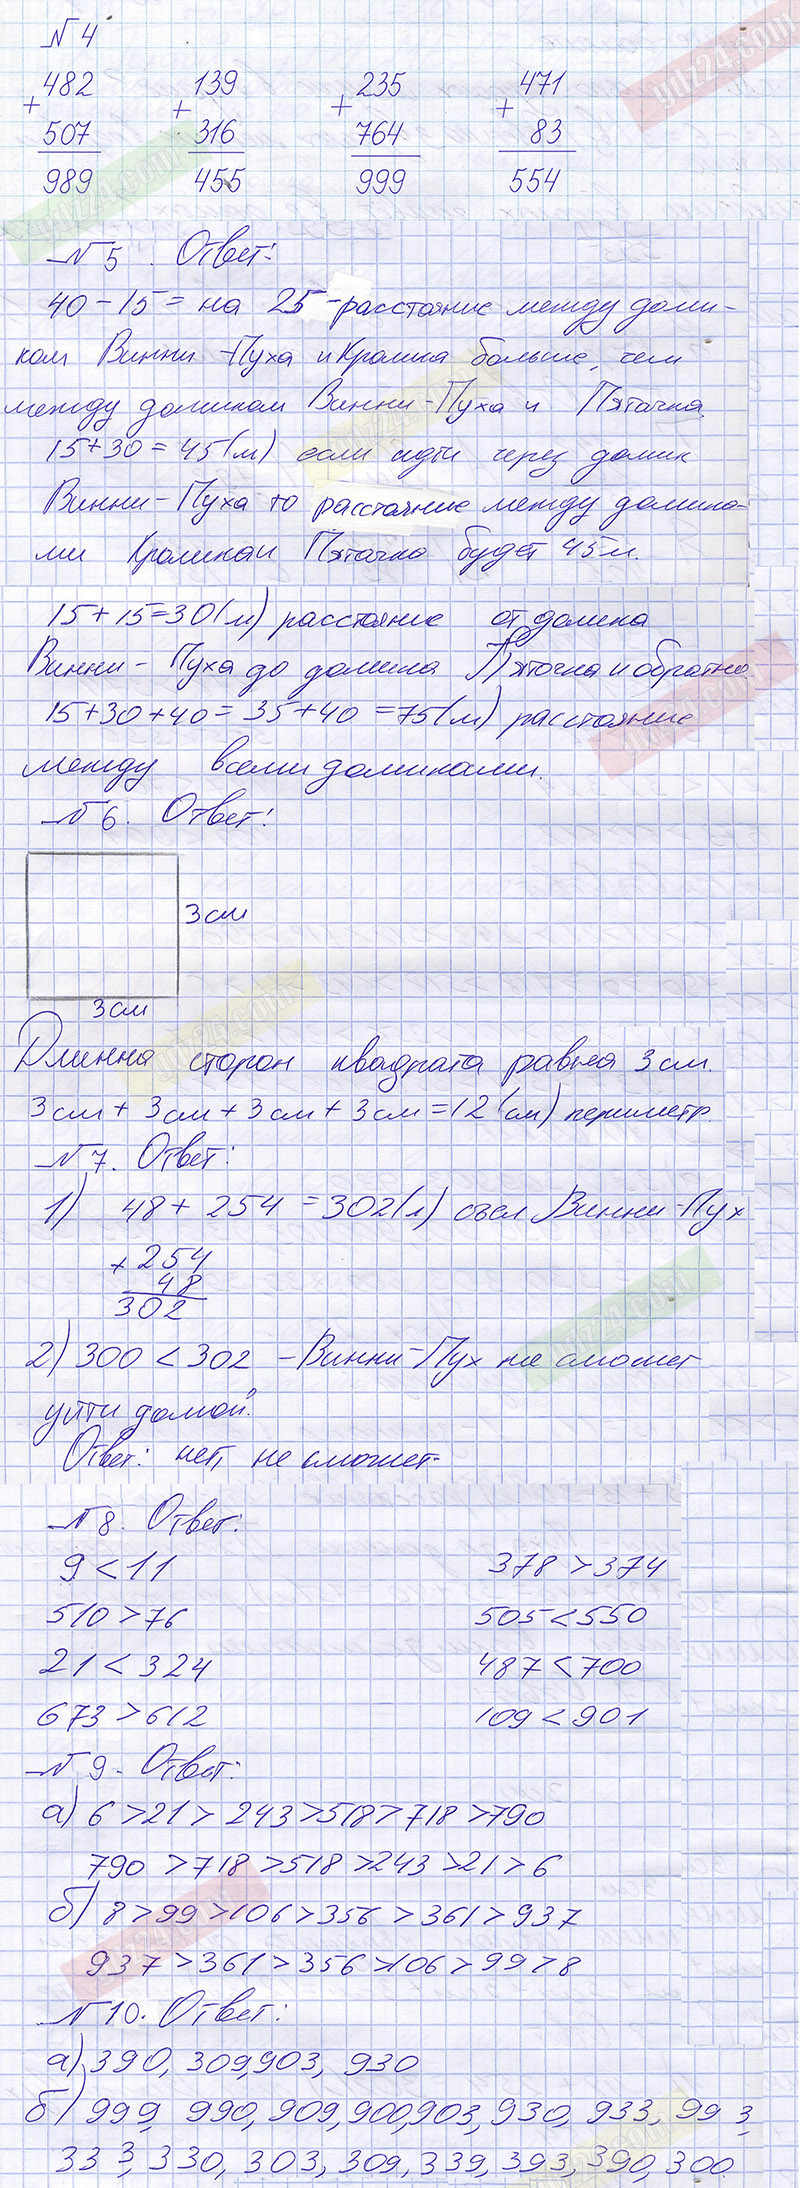 № 4
482 139 235 471
+ + + +
507 316 764 83
989 455 999 554
№ 5. Ответ:
40 - 15 = на 25 - расстояние между доми-
ком Винни-Пуха и Кролика больше, чем
между домиком Винни-Пуха и Пятачка
15 + 30 = 45 (м) если идти через домик
Винни-Пуха то расстояние между домика-
ми Кролика и Пятачка будет 45 м.
15 + 15 = 30 (м) расстояние от домика
Винни-Пуха до домика Пяточка и обратно
15 + 30 + 40 = 35 + 40 = 75 (м) расстояние
между всеми домиками.
№ 6. Ответ:
3 см
3 см
Длинна сторон квадрата равна 3 см.
3 см + 3 см + 3 см + 3 см = 12 (см) периметр.
№ 7. Ответ:
1) 48 + 254 = 302 (л) съел Винни-Пух
+ 254
48
302
2) 300 < 302 - Винни-Пух не сможет
уйти домой.
Ответ: нет, не сможет.
№ 8. Ответ:
9 < 11 378 > 374
510 > 76 505 < 550
21 < 324 487 < 700
673 > 612 109 < 901
№ 9. Ответ:
а) 6 > 21 > 243 > 518 > 718 > 790
790 > 718 > 518 > 243 > 21 > 6
б) 8 > 99 > 106 > 356 > 361 > 937
937 > 361 > 356 > 106 > 99 > 8
№ 10. Ответ:
а) 390, 309, 903, 930
б) 999, 990, 909, 900, 903, 930, 933, 993,
333, 330, 303, 309, 339, 393, 390, 300.
ydz24.com